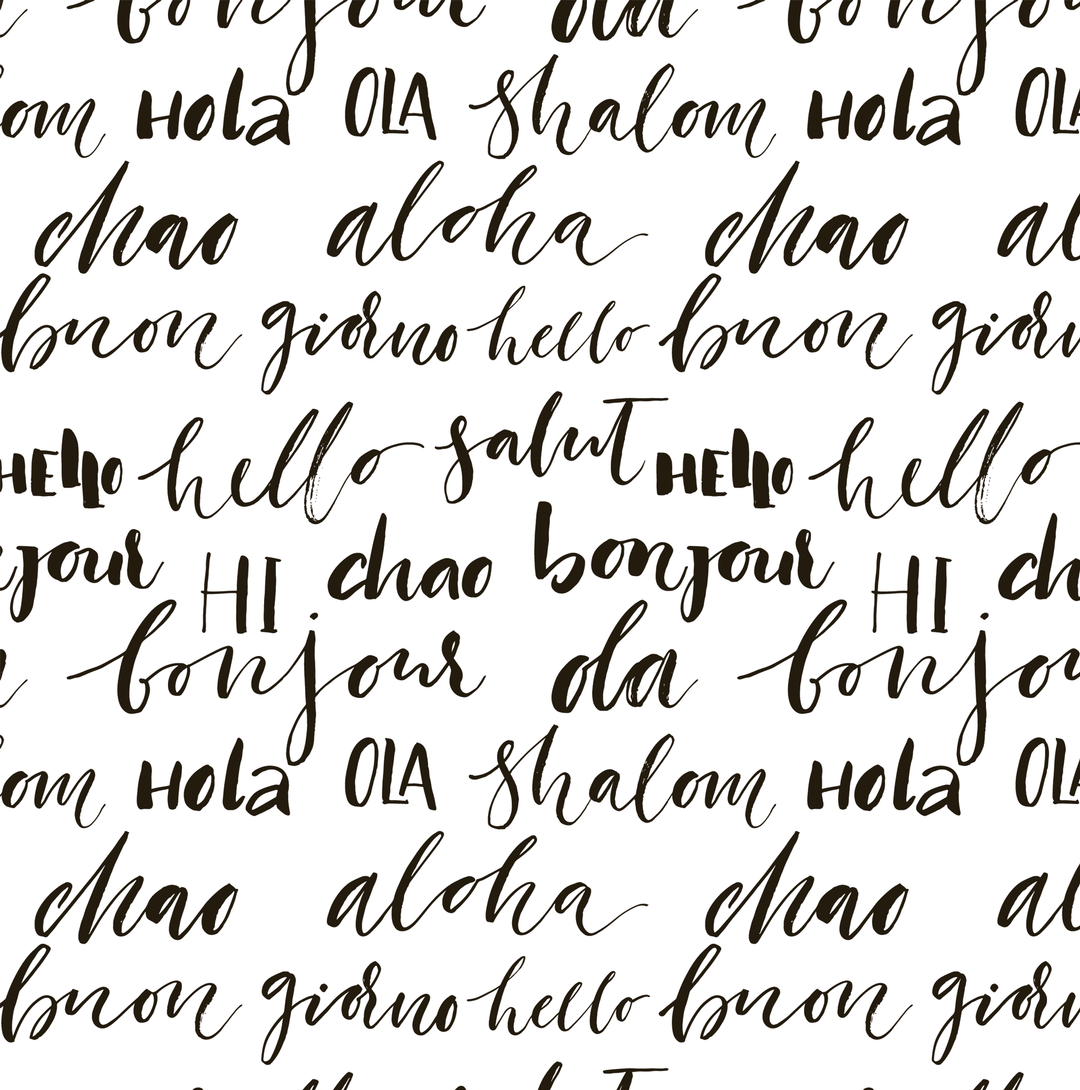 bonjour ola bonjou
om Hola OLA shalom Hola OLA
chao aloha chao al
buon giorno hello buon giorn
HEllo hello salut HEllo hello
jour HI chao bonjour HI ch
a bonjour ola bonjou
om Hola OLA shalom Hola OLA
chao aloha chao al
buon giorno hello buon giorn